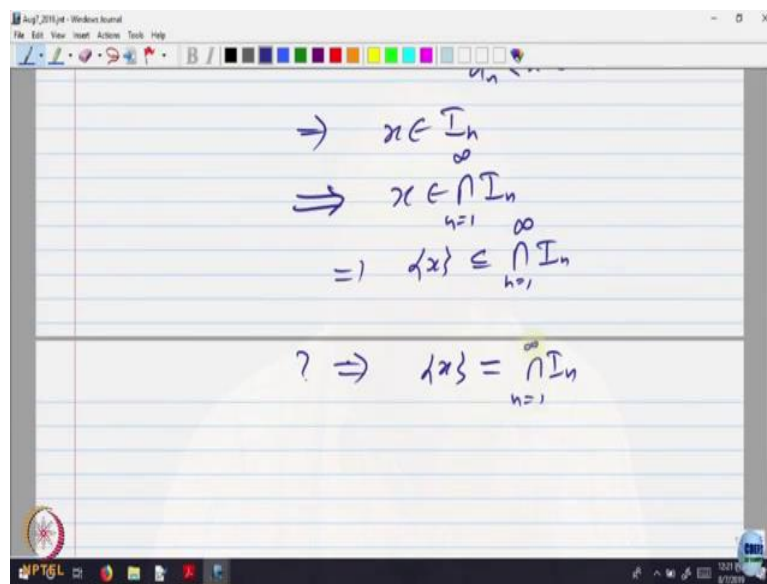 Aug7_2019.jnt - Windows Journal
File Edit View Insert Actions Tools Help
B I
⇒ x ∈ Iₙ
⇒ x ∈ ⋂_{n=1}^{∞} Iₙ
=) {x} ⊆ ⋂_{n=1}^{∞} Iₙ
? ⇒ {x} = ⋂_{n=1}^{∞} Iₙ
NPTEL
CDEEP
12:21
8/7/2019